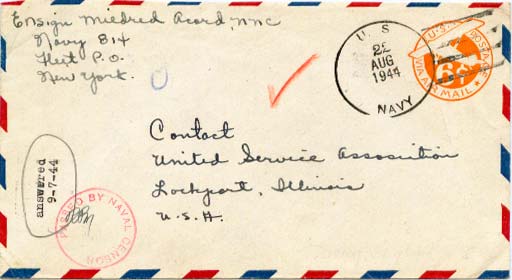 Ensign Mildred Acord, NNC
Navy 814
Fleet P.O.
New York.
U. S.
22
AUG
1944
NAVY
U.S. POSTAGE
6¢
VIA AIR MAIL
answered
9-7-44
PASSED BY NAVAL CENSOR
Contact
United Service Association
Lockport, Illinois
U.S.A.